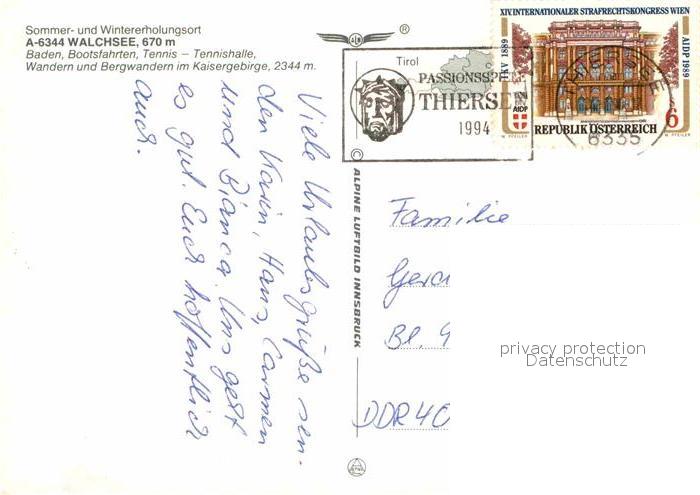 Sommer- und Wintererholungsort
A-6344 WALCHSEE, 670 m
Baden, Bootsfahrten, Tennis – Tennishalle,
Wandern und Bergwandern im Kaisergebirge, 2344 m.
Viele Urlaubsgrüße sen-
den Karin, Hans, Carmen
und Bianca. Uns geht
es gut. Euch hoffentlich
auch.
ALPINE LUFTBILD INNSBRUCK
©
®
Tirol
PASSIONSSP
THIERSE
1994
XIV INTERNATIONALER STRAFRECHTSKONGRESS WIEN
IKV 1889
AIDP 1989
AIDP
S 6
REPUBLIK ÖSTERREICH
W. PFEILER
THIERSEE
6335
Familie
Gera
Bl. 9
DDR 40
privacy protection
Datenschutz